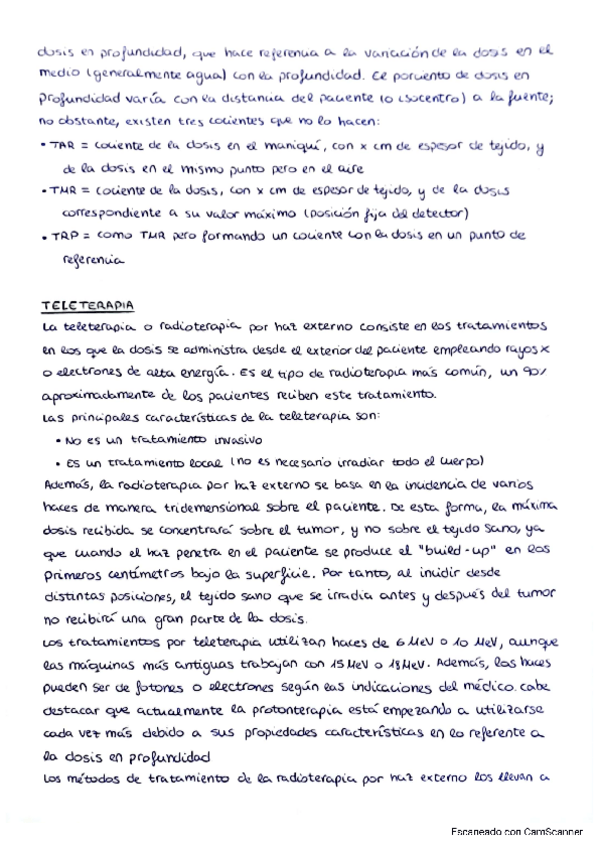 dosis en profundidad, que hace referencia a la variación de la dosis en el
medio (generalmente agua) con la profundidad. El porciento de dosis en
profundidad varía con la distancia del paciente (o isocentro) a la fuente;
no obstante, existen tres cocientes que no lo hacen:
• TAR = cociente de la dosis en el maniquí, con x cm de espesor de tejido, y
de la dosis en el mismo punto pero en el aire
• TMR = cociente de la dosis, con x cm de espesor de tejido, y de la dosis
correspondiente a su valor máximo (posición fija del detector)
• TRP = como TMR pero formando un cociente con la dosis en un punto de
referencia
TELETERAPIA
La teleterapia o radioterapia por haz externo consiste en los tratamientos
en los que la dosis se administra desde el exterior del paciente empleando rayos x
o electrones de alta energía. Es el tipo de radioterapia más común, un 90%
aproximadamente de los pacientes reciben este tratamiento.
Las principales características de la teleterapia son:
• No es un tratamiento invasivo
• Es un tratamiento local (no es necesario irradiar todo el cuerpo)
Además, la radioterapia por haz externo se basa en la incidencia de varios
haces de manera tridemensional sobre el paciente. De esta forma, la máxima
dosis recibida se concentrará sobre el tumor, y no sobre el tejido sano, ya
que cuando el haz penetra en el paciente se produce el "build-up" en los
primeros centímetros bajo la superficie. Por tanto, al incidir desde
distintas posiciones, el tejido sano que se irradia antes y después del tumor
no recibirá una gran parte de la dosis.
Los tratamientos por teleterapia utilizan haces de 6 MeV o 10 MeV, aunque
las máquinas más antiguas trabajan con 15 MeV o 18 MeV. Además, los haces
pueden ser de fotones o electrones según las indicaciones del médico. Cabe
destacar que actualmente la protonterapia está empezando a utilizarse
cada vez más debido a sus propiedades características en lo referente a
la dosis en profundidad
Los métodos de tratamiento de la radioterapia por haz externo los llevan a
Escaneado con CamScanner